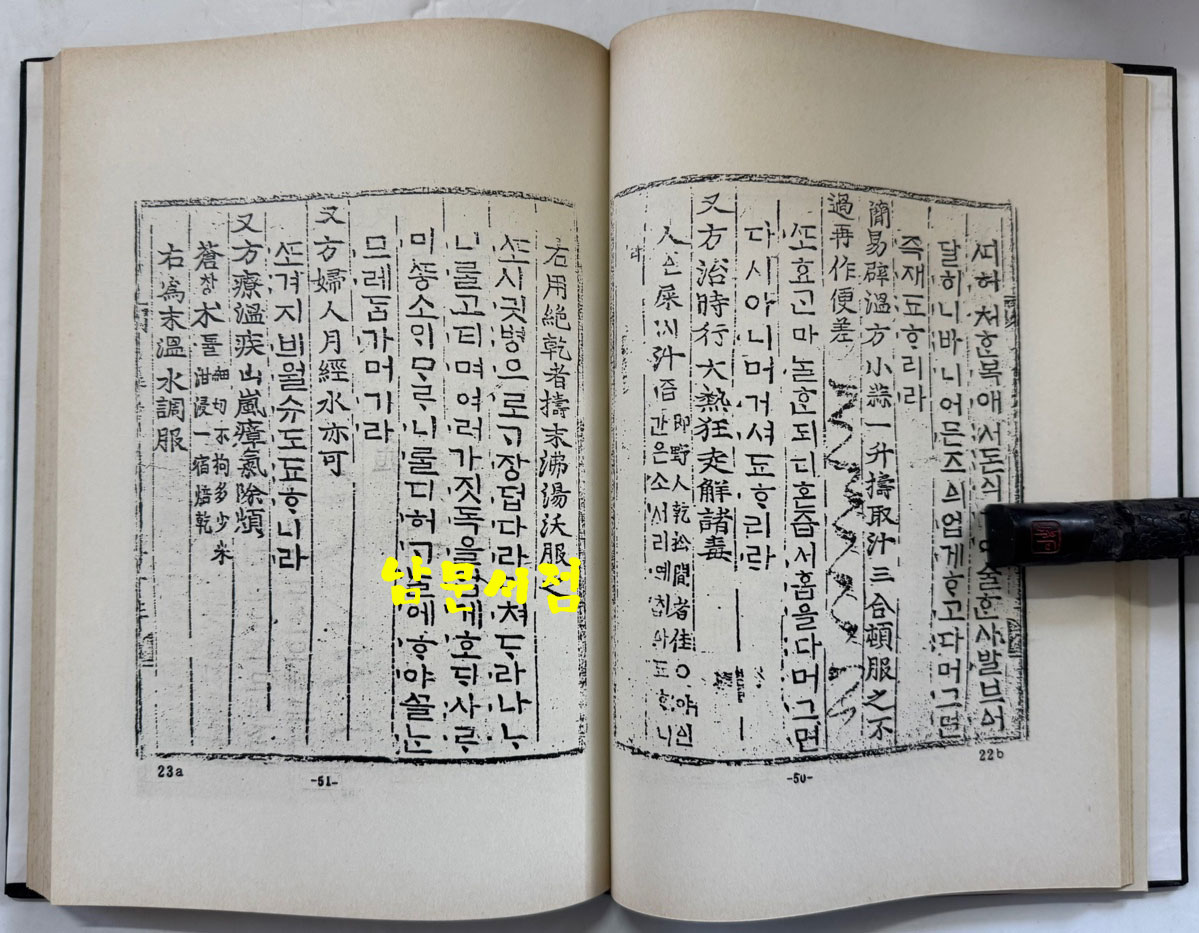 달히니바니어든즈의업게ᄒᆞ고다머그면
즉재됴ᄒᆞ리라
簡易辟溫方小蒜一升擣取汁三合頓服之不
過再作便差
ᄯᅩ효근마ᄂᆞᆯᄒᆞᆫ되디흔즙서홉을다머그면
다시아니머거셔됴ᄒᆞ리라
又方治時行大熱狂走解諸毒
人인屎시汁즙 即野人乾 於間者佳〇야인
간은소서리예 됴ᄒᆞ니
22b
-50-
右用絶乾者擣末沸湯沃服之
ᄯᅩ시긧병으로 장덥다라 쳐ᄃᆞ라나ᄂᆞ
니ᄅᆞᆯ고티며여러가짓독을 게호ᄃᆡ사ᄅᆞ
미ᄯᅩᆼ소인ᄆᆞᄅᆞ니ᄅᆞᆯ디허 ᄀᆞᆯᄋᆡᄒᆞ야ᄭᅳᆯᄂᆞᆫ
므레ᄃᆞᆷ가머기라
又方婦人月經水亦可
ᄯᅩ겨지비월슈도됴ᄒᆞ니라
又方療溫疾山嵐瘴氣除煩
蒼창朮튤 細切不拘多少米泔浸一宿焙乾
右爲末溫水調服
23a
-51-
남문서점